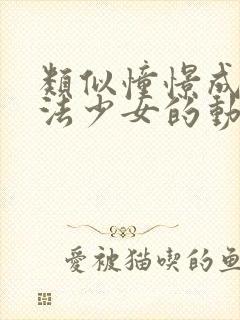 類似憧憬成
法少女的動
愛被猫喫的魚